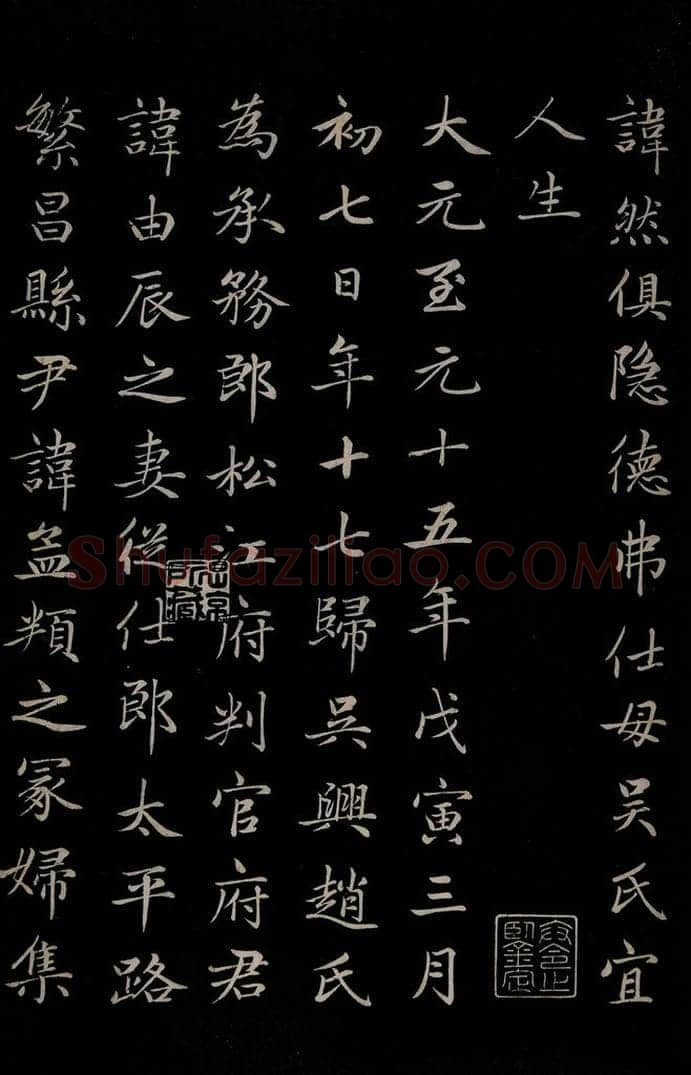 諱然俱隐德弗仕母吴氏宜
人生
大元至元十五年戊寅三月
初七日年十七歸吳興趙氏
為承務郎松江府判官府君
諱由辰之妻従仕郎太平路
繁昌縣尹諱孟頖之冢婦集
Shufaziliao.COM